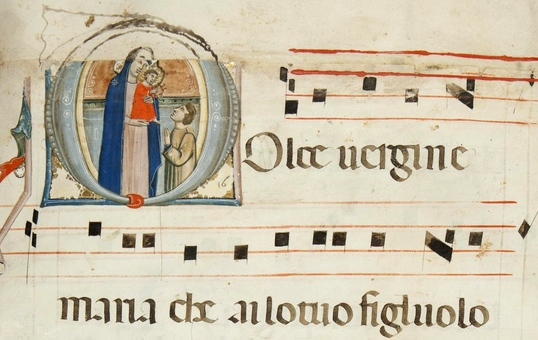 Dolce uergine
maria che ai lo tuo figluolo